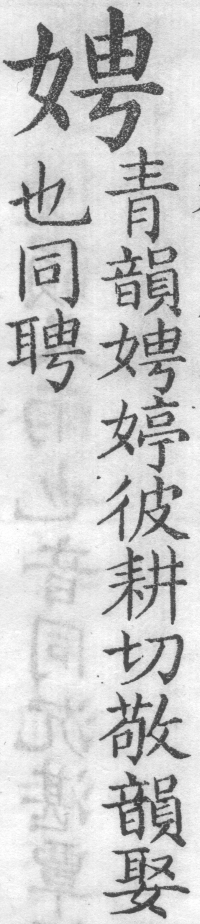 娉
青韻娉婷彼耕切敬韻娶
也同聘